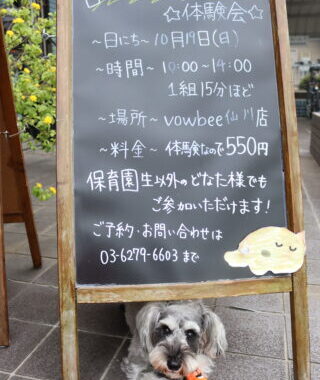 ☆体験会☆
~日にち~ 10月19日(日)
~時間~ 10:00~14:00
1組15分ほど
~場所~ vowbee仙川店
~料金~ 体験なので550円
保育園生以外のどなた様でも
ご参加いただけます!
ご予約・お問い合わせは
03-6279-6603 まで